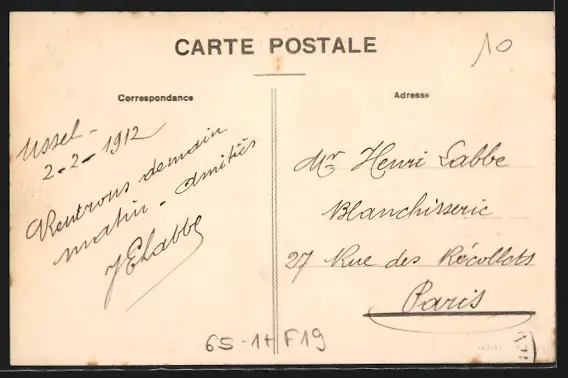 CARTE POSTALE
10
Correspondance
Adresse
Ussel -
2-2-1912
Rentrons demain
matin - amitiés
Labbe
Mr Henri Labbe
Blanchisserie
27 Rue des Récollets
Paris
65-1H F19